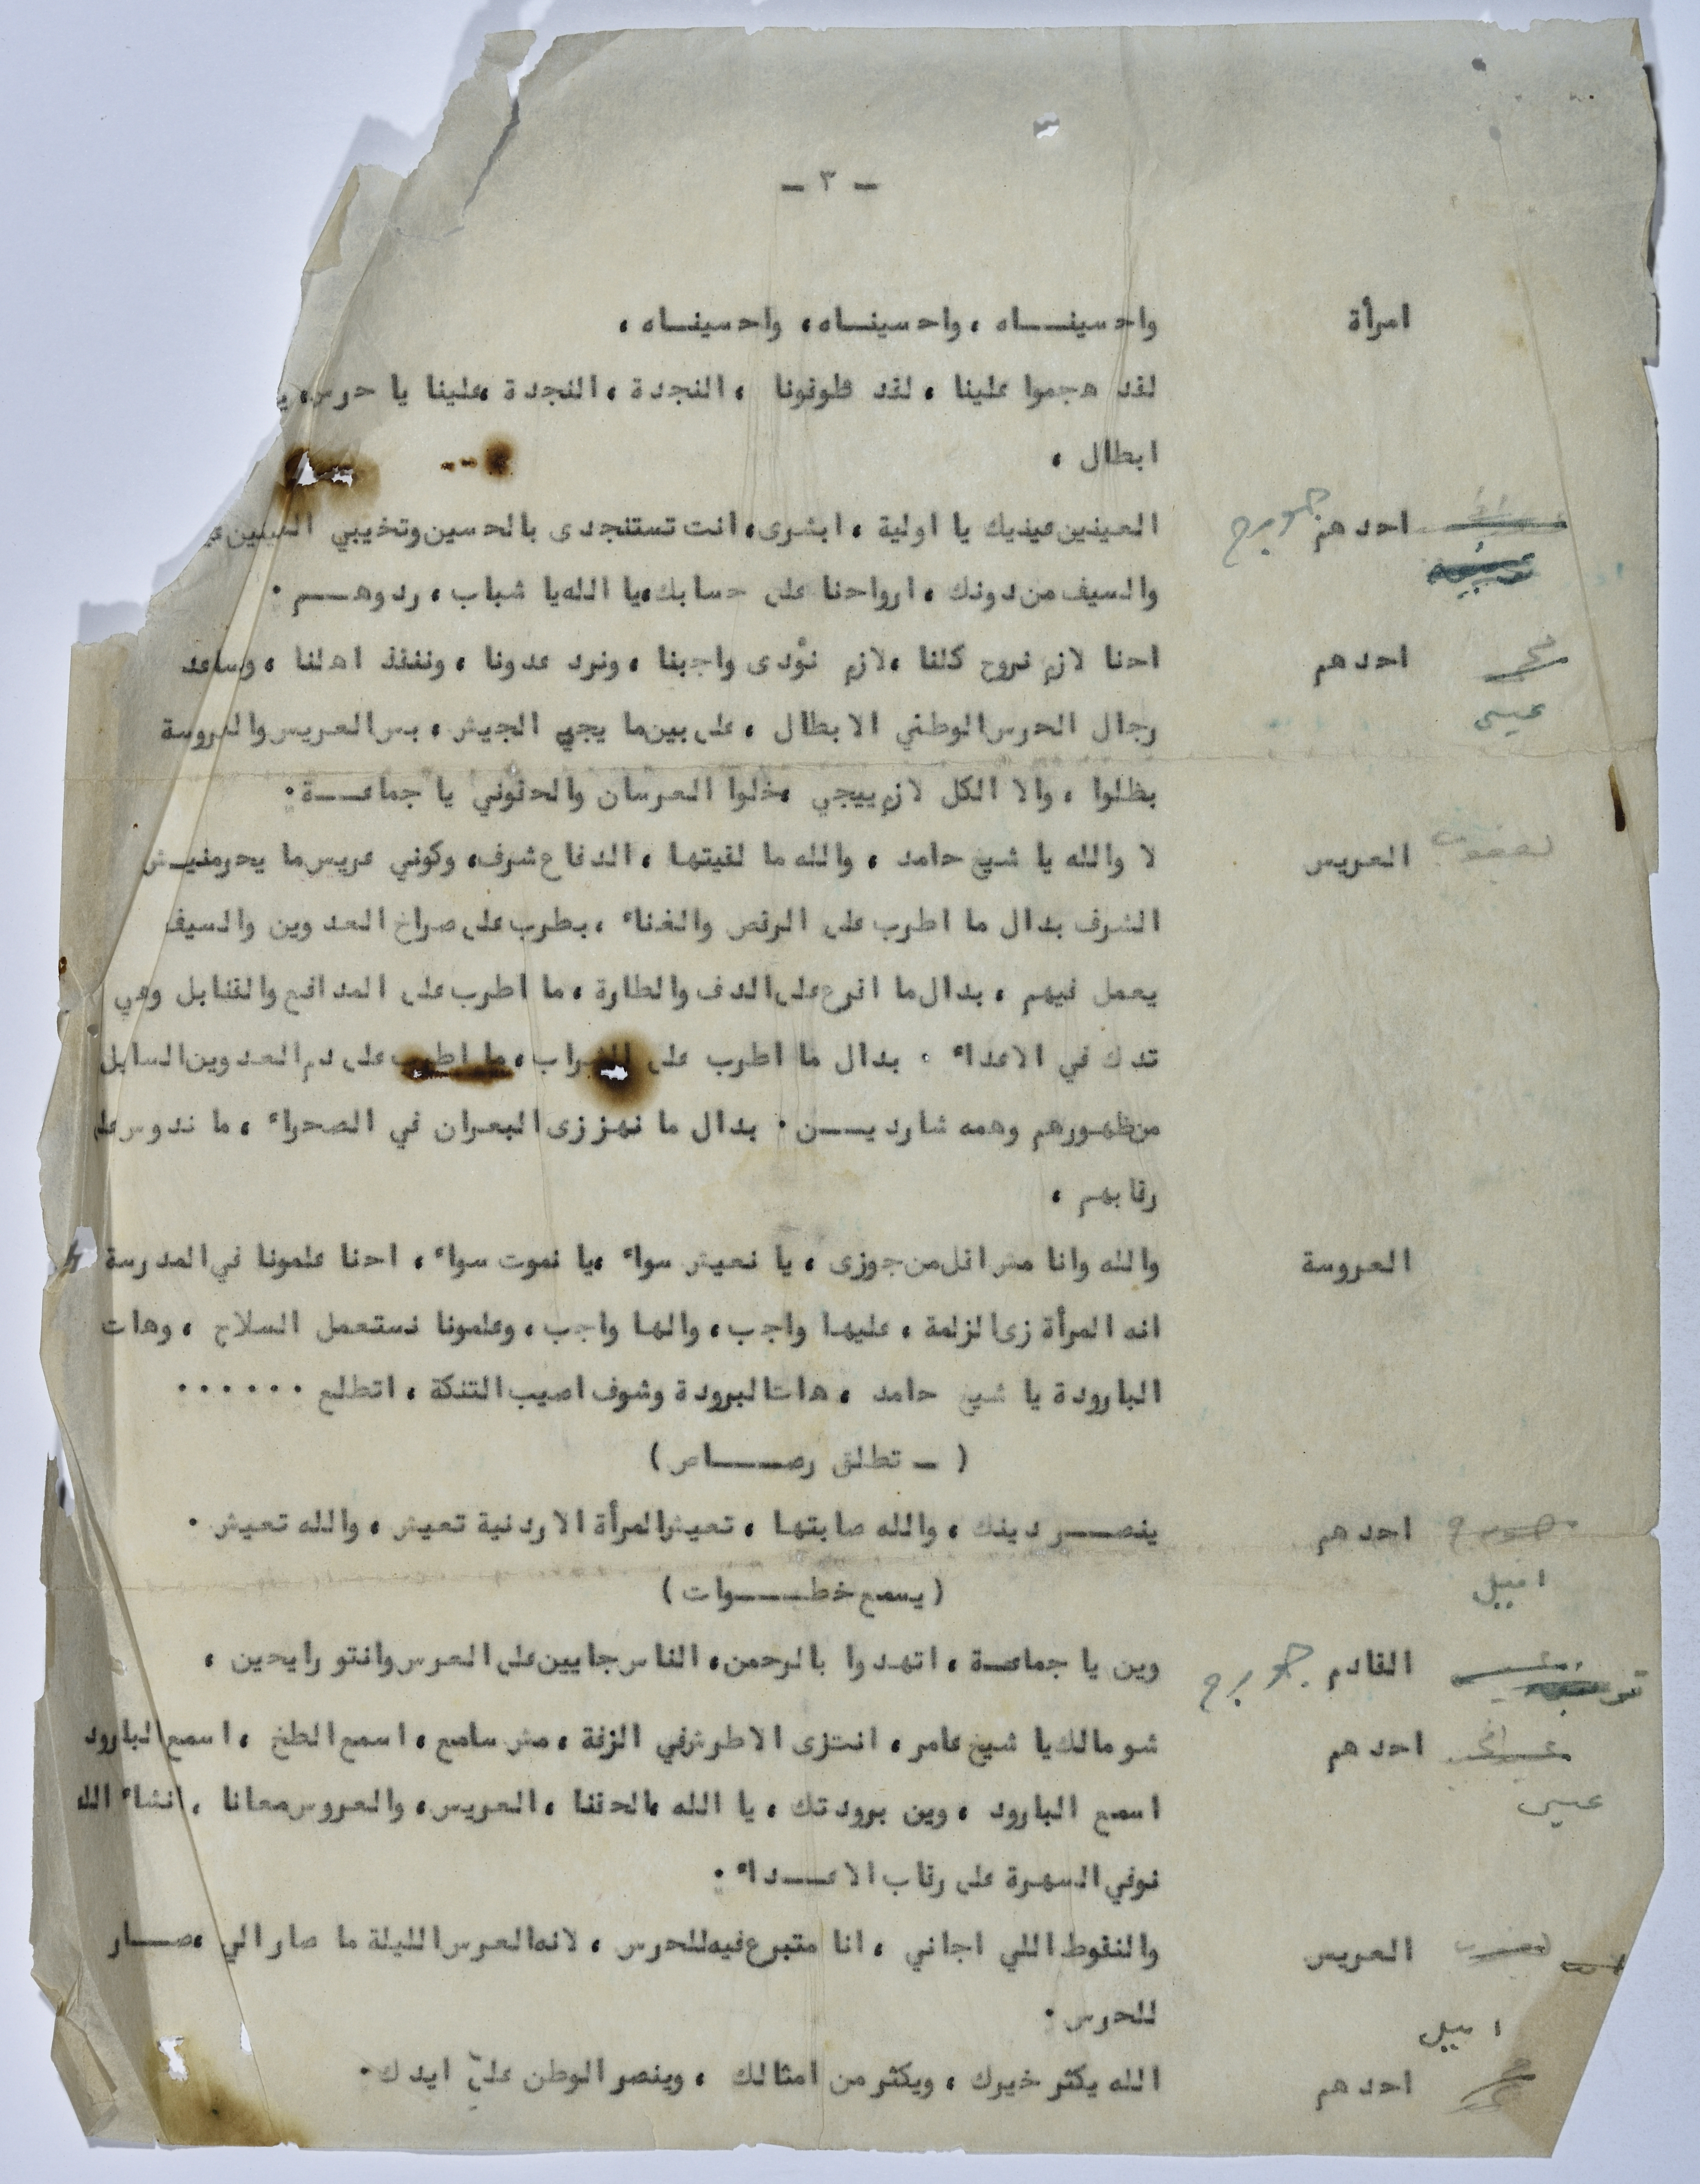 - ٣ -
امرأة واحسينــاه ، واحسينــاه، واحسينــاه ،
لقد هجموا علينا ، لقد طوقونا ، النجدة ، النجدة ،علينا يا حرس، ي
ابطال ،
احدهم جورج العينين عينيك يا اولية ، ابشرى، انت تستنجدى بالحسين وتخيبي
والسيف من دونك ، ارواحنا على حسابك،يا الله يا شباب ، ردوهــم .
احدهم احنا لازم نروح كلنا ،لازم نؤدى واجبنا ، ونرد عدونا ، وننقذ اهلنا ، وساعد
عيسى رجال الحرس الوطني الابطال ، على بين ما يجي الجيش ، بس العريس والعروسة
بظلوا ، والا الكل لازم ييجي ،خلوا العرسان والحقوني يا جماعــة .
العريس لا والله يا شيخ حامد ، والله ما لقيتها ، الدفاع شرف، وكوني عريس ما يحرمنيـش
الشرف بدال ما اطرب على الرقص والغناء ، بطرب على صراخ العدوين والسيف
يعمل فيهم ، بدال ما اقرع على الدف والطارة ، ما اطرب على المدافع والقنابل وهي
تدك في الاعداء . بدال ما اطرب على الشراب ، ما اطرب على دم العدوين السايل
من ظهورهم وهمه شارديــن . بدال ما نهز زى البعران في الصحراء ، ما ندوس على
رقابهم ،
العروسة والله وانا مش اقل من جوزى ، يا نعيش سواء ،يا نموت سواء ، احنا علمونا في المدرسة
انه المرأة زى الزلمة ، عليها واجب ، والها واجب ، وعلمونا نستعمل السلاح ، وهات
البارودة يا شيخ حامد ، هات البرودة وشوف اصيب التنكة ، اتطلع ......
( - تطلق رصــاص )
احدهم ينصــر دينك ، والله صابتها ، تعيش المرأة الاردنية تعيش ، والله تعيش .
اميل
( يسمع خطــوات )
القادم جورج وين يا جماعة ، اتهدوا بالرحمن، الناس جايين على العرس وانتو رايحين ،
احدهم شو مالك يا شيخ عامر ، انت زى الاطرش في الزفة ، مش سامع ، اسمع الطخ ، اسمع البارود
عيسى اسمع البارود ، وين برودتك ، يا الله ،الحقنا ، العريس، والعروس معانا ، انشاء الله
نوفي السهرة على رقاب الاعــداء .
العريس والنقوط اللي اجاني ، انا متبرع فيه للحرس ، لانه العرس الليلة ما صار الي ،صــار
للحرس .
اميل
احدهم الله يكثر خيرك ، ويكثر من امثالك ، وينصر الوطن على ايدك .